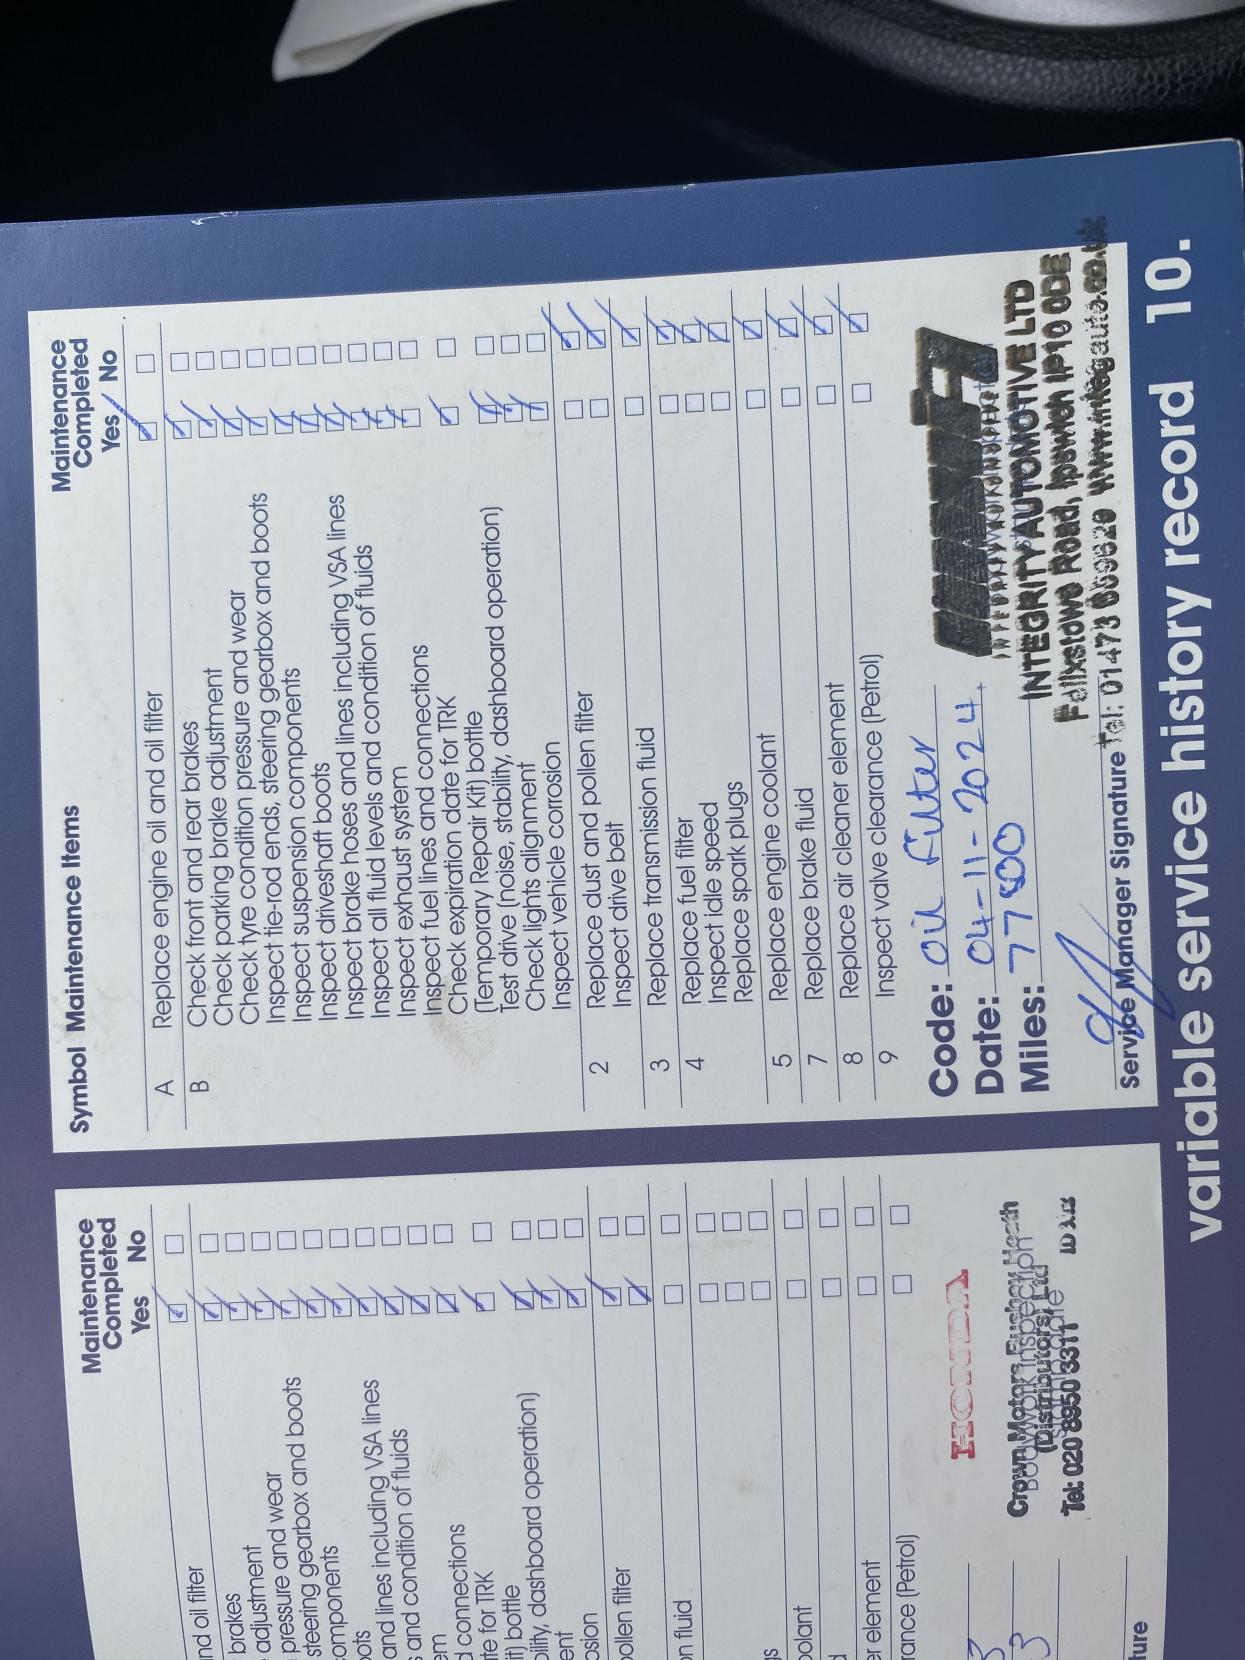 Maintenance
Completed
Symbol Maintenance Items Yes No
A Replace engine oil and oil filter
B Check front and rear brakes
Check parking brake adjustment
Check tyre condition pressure and wear
Inspect tie-rod ends, steering gearbox and boots
Inspect suspension components
Inspect driveshaft boots
Inspect brake hoses and lines including VSA lines
Inspect all fluid levels and condition of fluids
Inspect exhaust system
Inspect fuel lines and connections
Check expiration date for TRK
(Temporary Repair Kit) bottle
Test drive (noise, stability, dashboard operation)
Check lights alignment
Inspect vehicle corrosion
2 Replace dust and pollen filter
Inspect drive belt
3 Replace transmission fluid
4 Replace fuel filter
Inspect idle speed
Replace spark plugs
5 Replace engine coolant
7 Replace brake fluid
8 Replace air cleaner element
9 Inspect valve clearance (Petrol)
Code: Oil Filter
Date: 04-11-2024.
Miles: 77800
INTEGRITY AUTOMOTIVE LTD
Felixstowe Road, Ipswich IP10 0DE
Tel: 01473 659829 www.integauto.co.uk
Service Manager Signature
variable service history record 10.
Maintenance
Completed
Yes No
nd oil filter
brakes
adjustment
pressure and wear
steering gearbox and boots
components
oots
and lines including VSA lines
s and condition of fluids
em
d connections
ate for TRK
it) bottle
bility, dashboard operation)
ent
osion
pollen filter
on fluid
gs
oolant
d
er element
rance (Petrol)
HONDA
Crown Motors Bushey Heath
(Distributors) Ltd
Bodywork Inspection
Tel: 020 8950 3311
3
3
ture